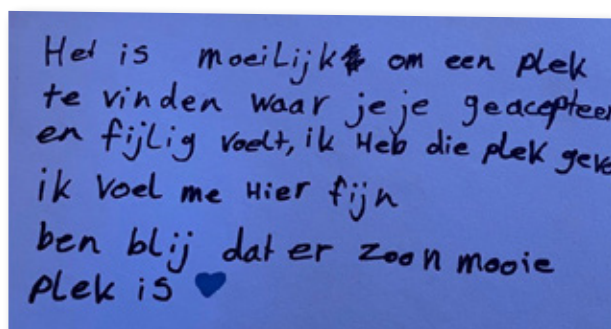 Het is moeilijk om een plek
te vinden waar je je geacepteer
en fijlig voelt, ik Heb die plek geve
ik voel me Hier fijn
ben blij dat er zoon mooie
plek is 💙